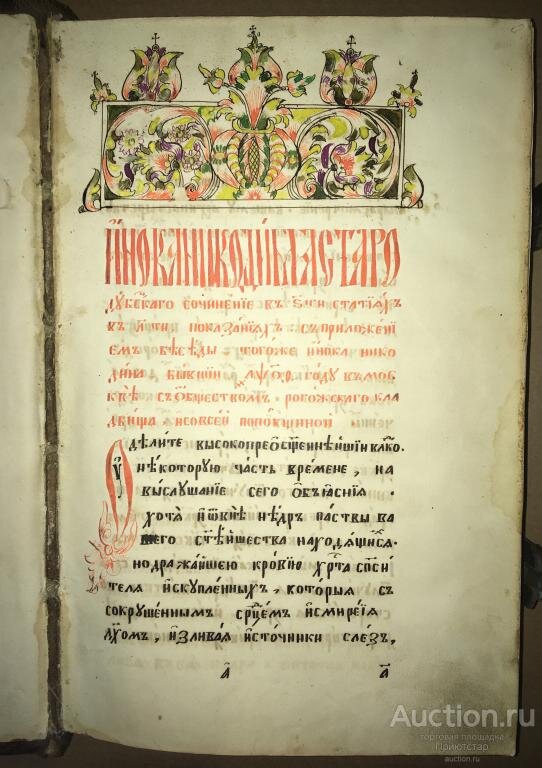 И҆НОКА НИКОДИМА СТАРО
дꙋбскаго сочинение въ ѕ҃ти статїахъ
показанїахъ: съприложенї
емъ бесѣды: тогоже инока нико
дима, бывшїи году въмос
квѣ съ обществомъ рогожскаго кла
дбища. и совсей поповщиной
Оудѣлите высокопреосщеннѣйшїи влко.
нѣкоторую часть времене, на
выслушание сего объяснїя.
хотя и҆ѡвнѣ нѣдръ паствы ва
шего ст҃ѣйшества находящихся.
но дражайшею кровїю хр҃та сп҃си
теля и҆скупленныхъ, которыя съ
сокрушеннымъ ср҃цемъ и҆ смиренїя
дꙋхомъ, и҆зливая и҆сточники слезъ,
а҃ а҃
Auction.ru
торговая площадка
Приютстар
auction.ru